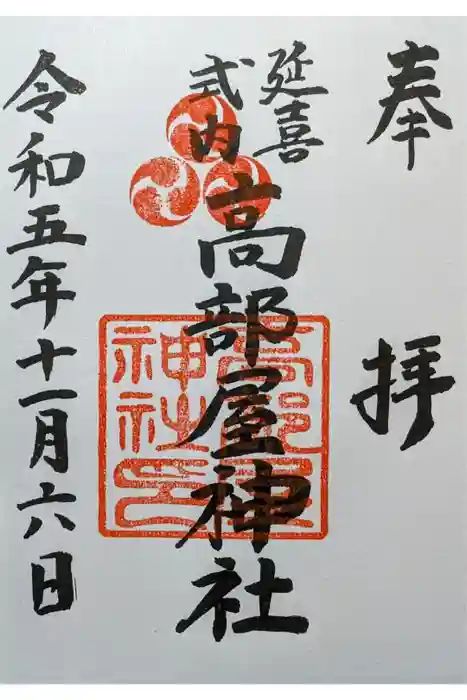 奉拝
延喜
式内
高部屋神社
高部屋
神社印
令和五年十一月六日